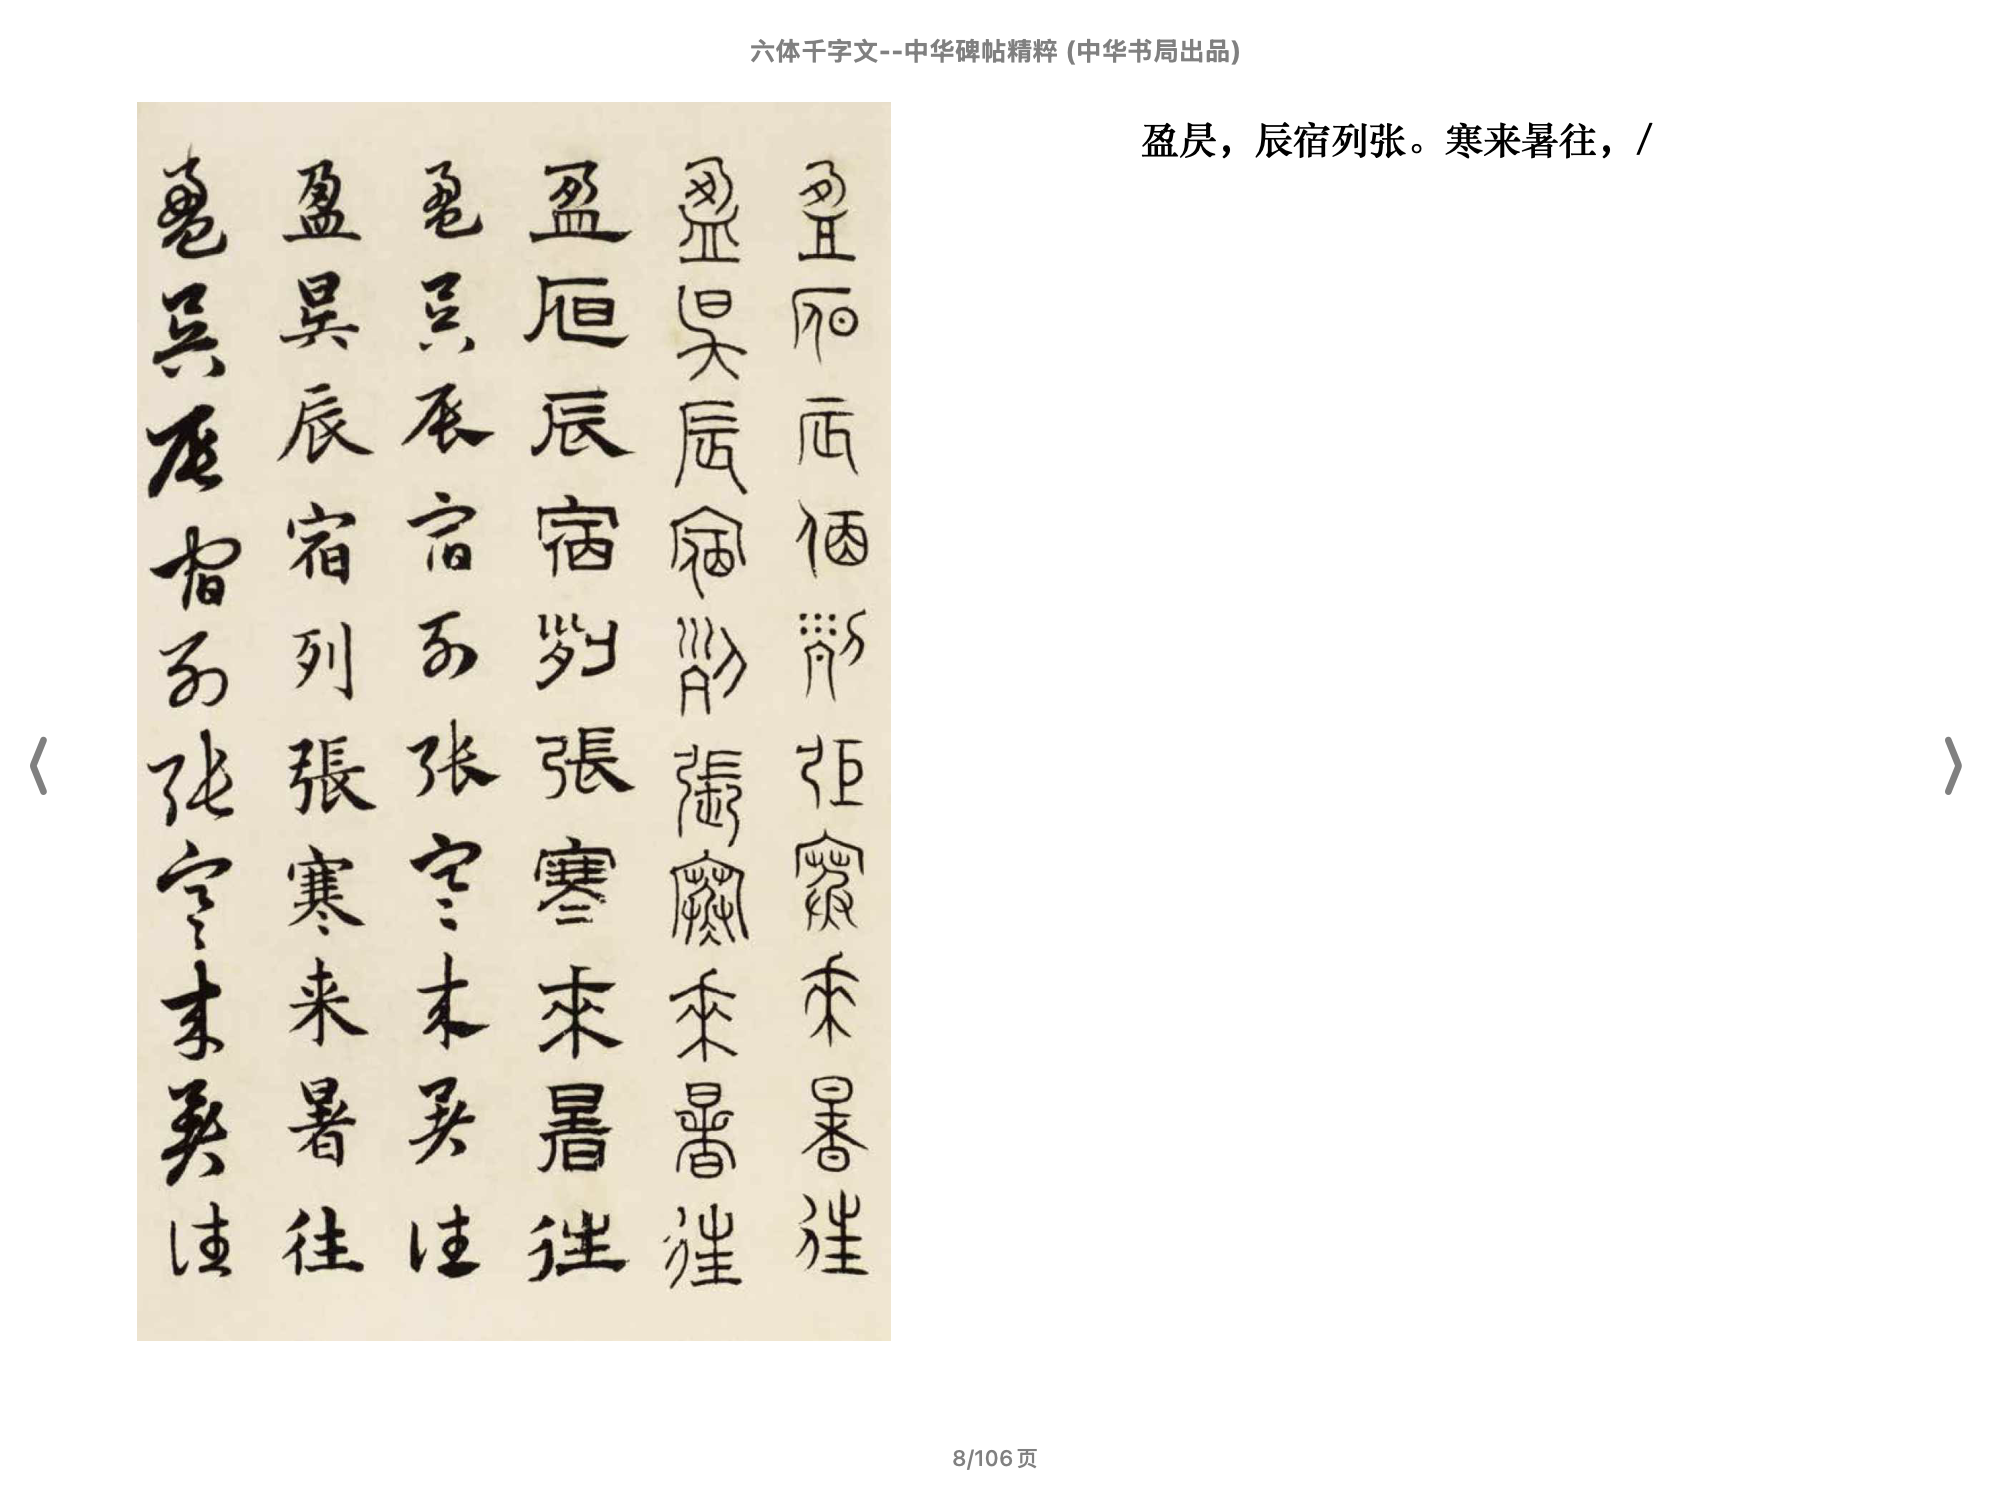 六体千字文--中华碑帖精粹 (中华书局出品)
盈昃辰宿列張寒来暑往
盈昃辰宿列張寒来暑往
盈昃辰宿列張寒来暑往
盈昃辰宿列張寒来暑往
盈昃辰宿列張寒来暑往
盈昃辰宿列張寒来暑往
盈昃，辰宿列张。寒来暑往，/
8/106页